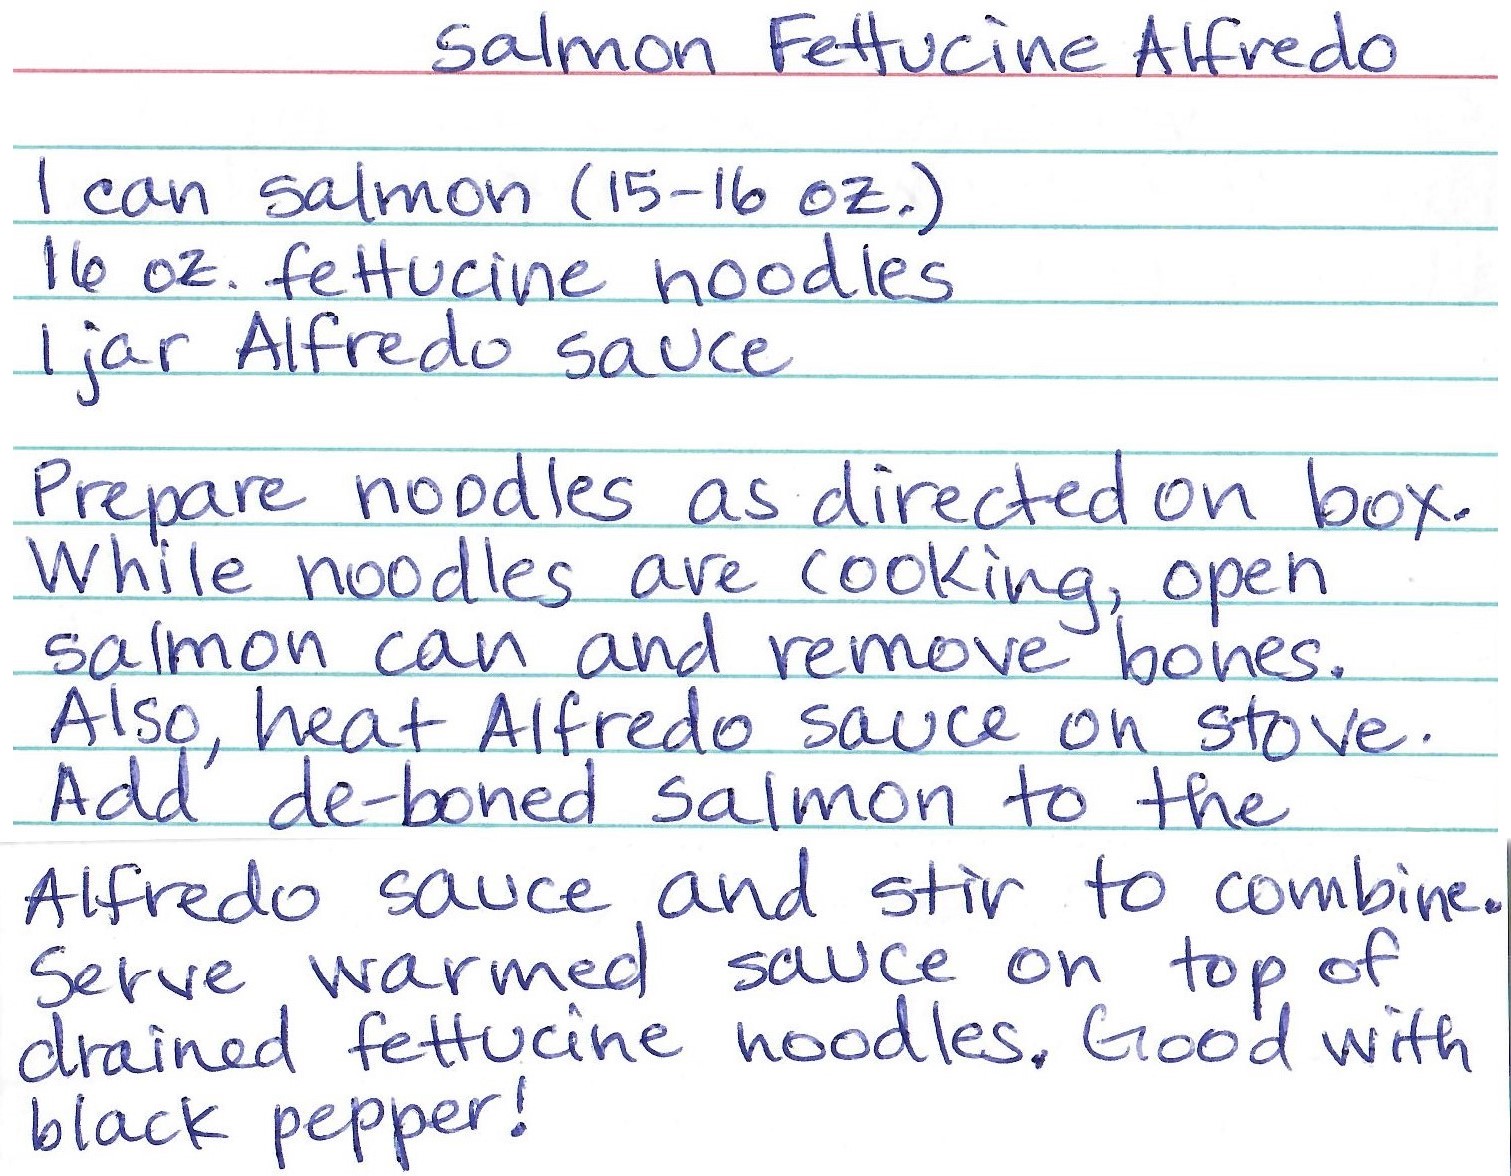 Salmon Fettucine Alfredo
1 can salmon (15-16 oz.)
16 oz. fettucine noodles
1 jar Alfredo sauce
Prepare noodles as directed on box.
While noodles are cooking, open
salmon can and remove bones.
Also, heat Alfredo sauce on stove.
Add de-boned salmon to the
Alfredo sauce and stir to combine.
Serve warmed sauce on top of
drained fettucine noodles. Good with
black pepper!